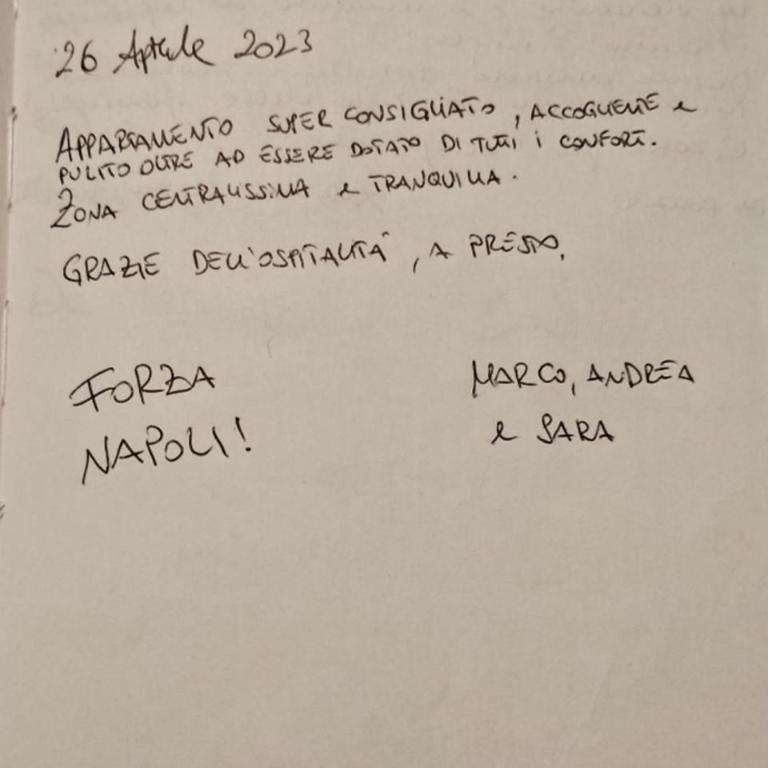 26 Aprile 2023
APPARTAMENTO SUPER CONSIGLIATO, ACCOGLIENTE e
PULITO OLTRE AD ESSERE DOTATO DI TUTTI i CONFORT.
ZONA CENTRALISSIMA e TRANQUILLA.
GRAZIE DELL'OSPITALITÀ, A PRESTO,
FORZA
NAPOLI!
MARCO, ANDREA
e SARA